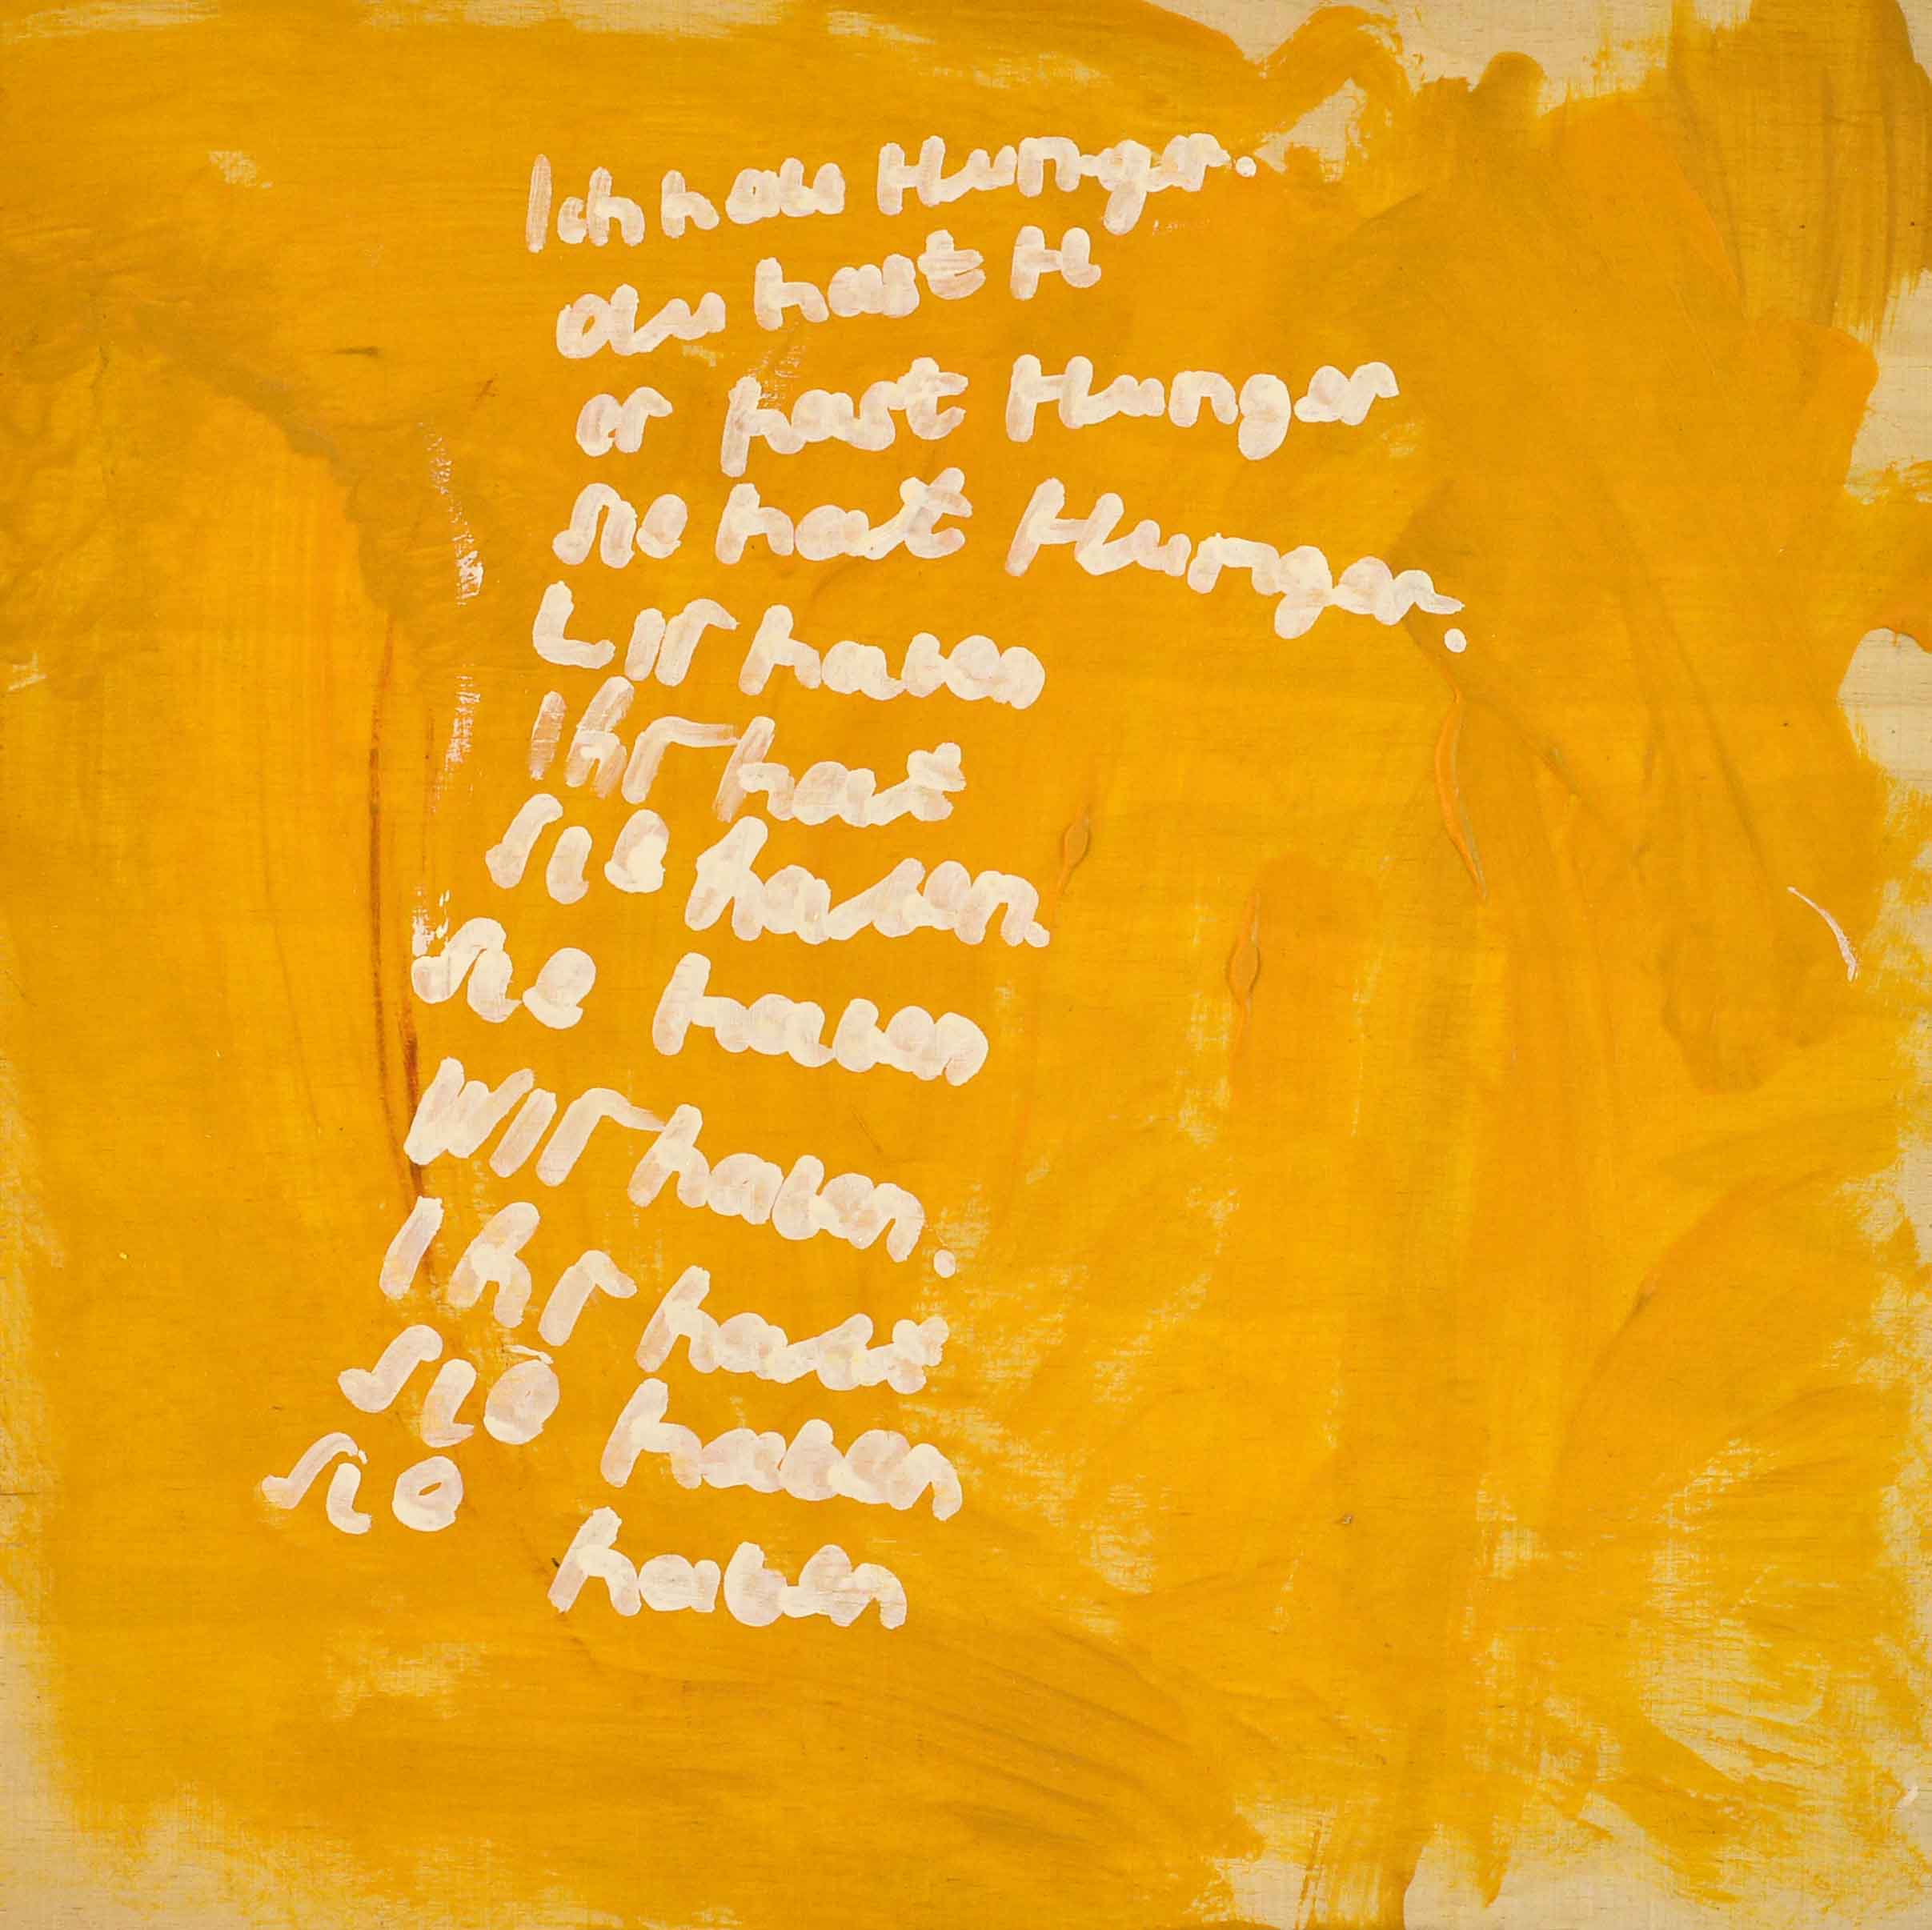 Ich habe Hunger.
du hast H
er hast Hunger
sie hat Hunger.
wir haben
Ihr habt
sie haben.
sie haben
wir haben.
Ihr habt
sie haben
sie haben